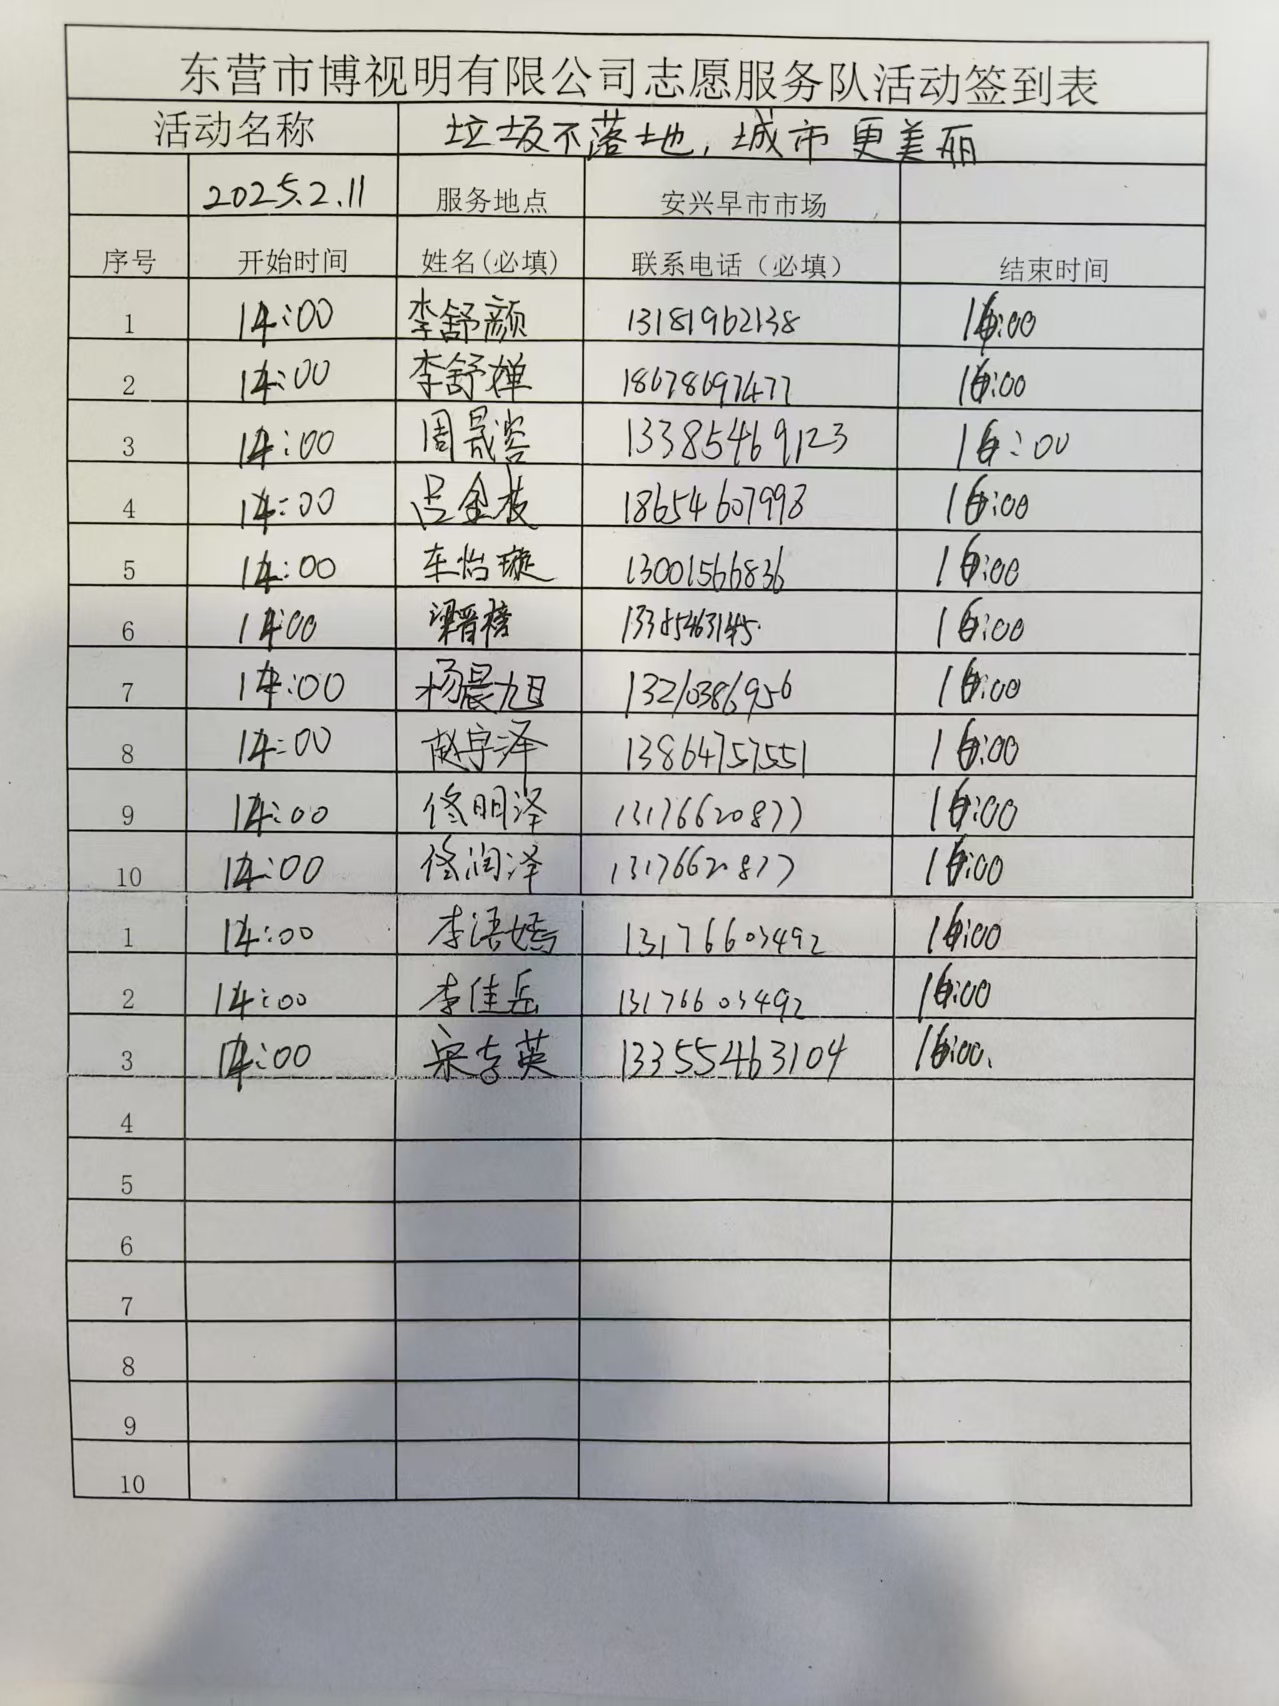 东营市博视明有限公司志愿服务队活动签到表
活动名称 垃圾不落地，城市更美丽
2025.2.11 服务地点 安兴早市市场
序号 开始时间 姓名(必填) 联系电话（必填） 结束时间
1 14:00 李舒颜 13181962138 16:00
2 14:00 李舒婵 18678697477 16:00
3 14:00 周晟容 13385469123 16:00
4 14:00 吕金枝 18654607993 16:00
5 14:00 车怡璇 13001566836 16:00
6 14:00 梁晋榕 13385463145 16:00
7 14:00 杨晨旭 13210386956 16:00
8 14:00 赵宇泽 13864757551 16:00
9 14:00 佟明泽 13176620877 16:00
10 14:00 佟润泽 13176620877 16:00
1 14:00 李语嫣 13176603492 16:00
2 14:00 李佳岳 13176603492 16:00
3 14:00 宋专英 13355463104 16:00.
4
5
6
7
8
9
10